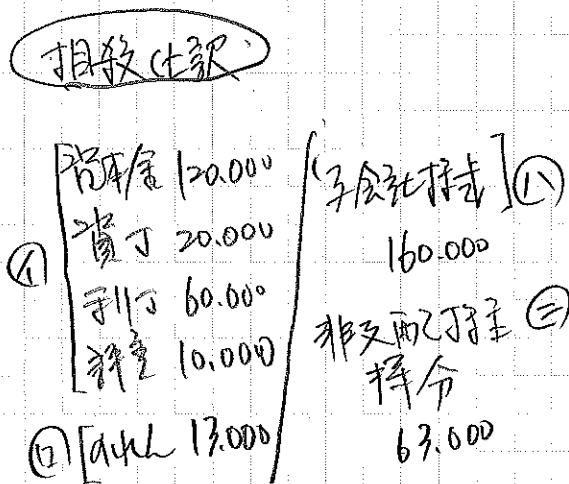 相殺仕訳
㋑
資本金 120.000
資丁 20.000
利丁 60.000
評差 10.000
㋺ のれん 13.000
子会社株式 ㋩
160.000
非支配株主 ㊁
持分
63.000